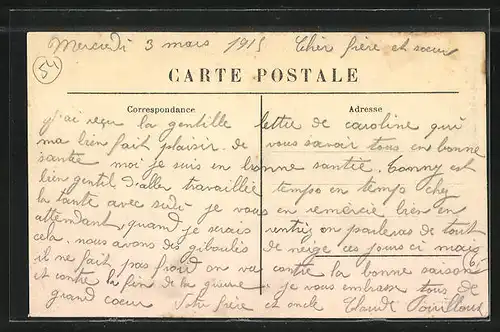 Mercredi 3 mars 1915 Cher frère et soeur
54
CARTE POSTALE
Correspondance Adresse
j'ai reçu la gentille lettre de caroline qui
ma bien fait plaisir de vous savoir tous en bonne
santie moi je suis en bonne santie, Tonny est
bien gentil d'aller travaillie tempo en temps chez
la tante avec je vous en remercie bien en
attendant quand je serais rentriz on parleras de tout
cela. nous avons des giboulis de neige ces jours ci mais
il ne fait pas froid on va contre la bonne saison
et contre la fin de la guerre. je vous embrasse tous de
grand coeur Votre frère et oncle Claude